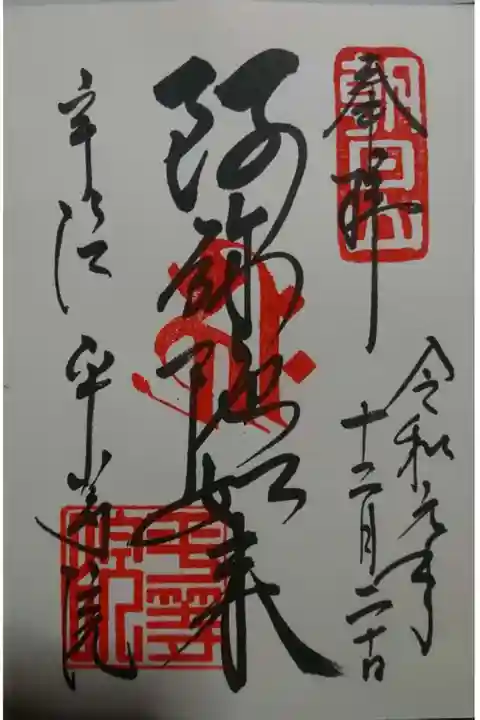 朝日山
奉拝
令和元年
十二月二十日
阿弥陀如来
宇治 平等院